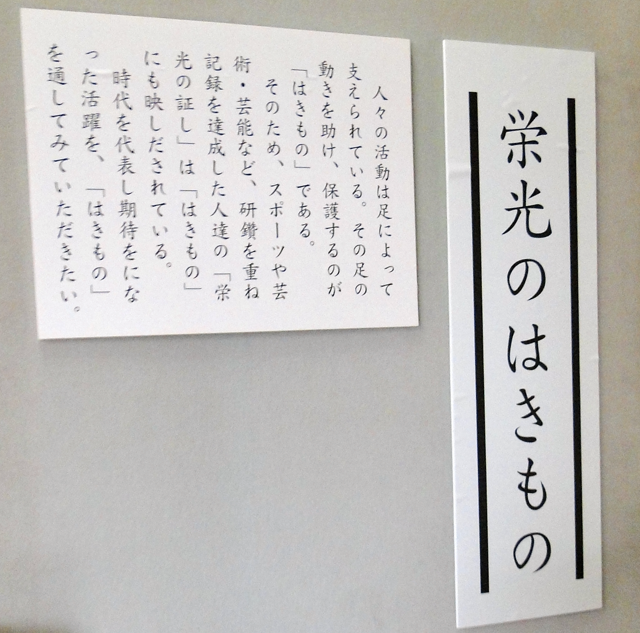 栄光のはきもの
人々の活動は足によって
支えられている。その足の
動きを助け、保護するのが
「はきもの」である。
そのため、スポーツや芸
術・芸能など、研鑽を重ね
記録を達成した人達の「栄
光の証し」は「はきもの」
にも映しだされている。
時代を代表し期待をにな
った活躍を、「はきもの」
を通してみていただきたい。